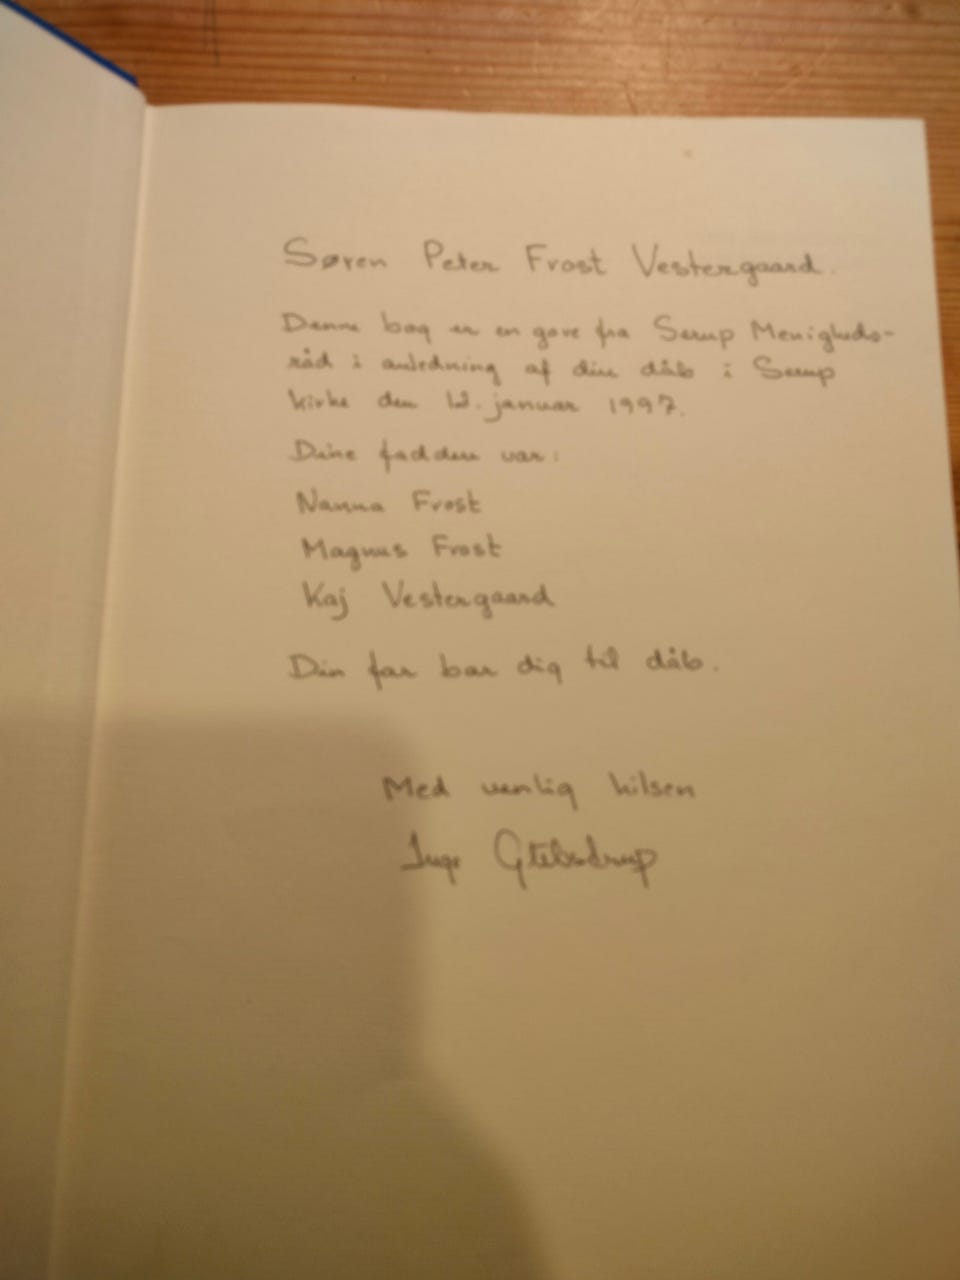 Søren Peter Frost Vestergaard.
Denne bog er en gave fra Serup Menigheds-
råd i anledning af din dåb i Serup
kirke den 12. januar 1997.
Dine faddere var:
Nanna Frost
Magnus Frost
Kaj Vestergaard
Din far bar dig til dåb.
Med venlig hilsen
Inge